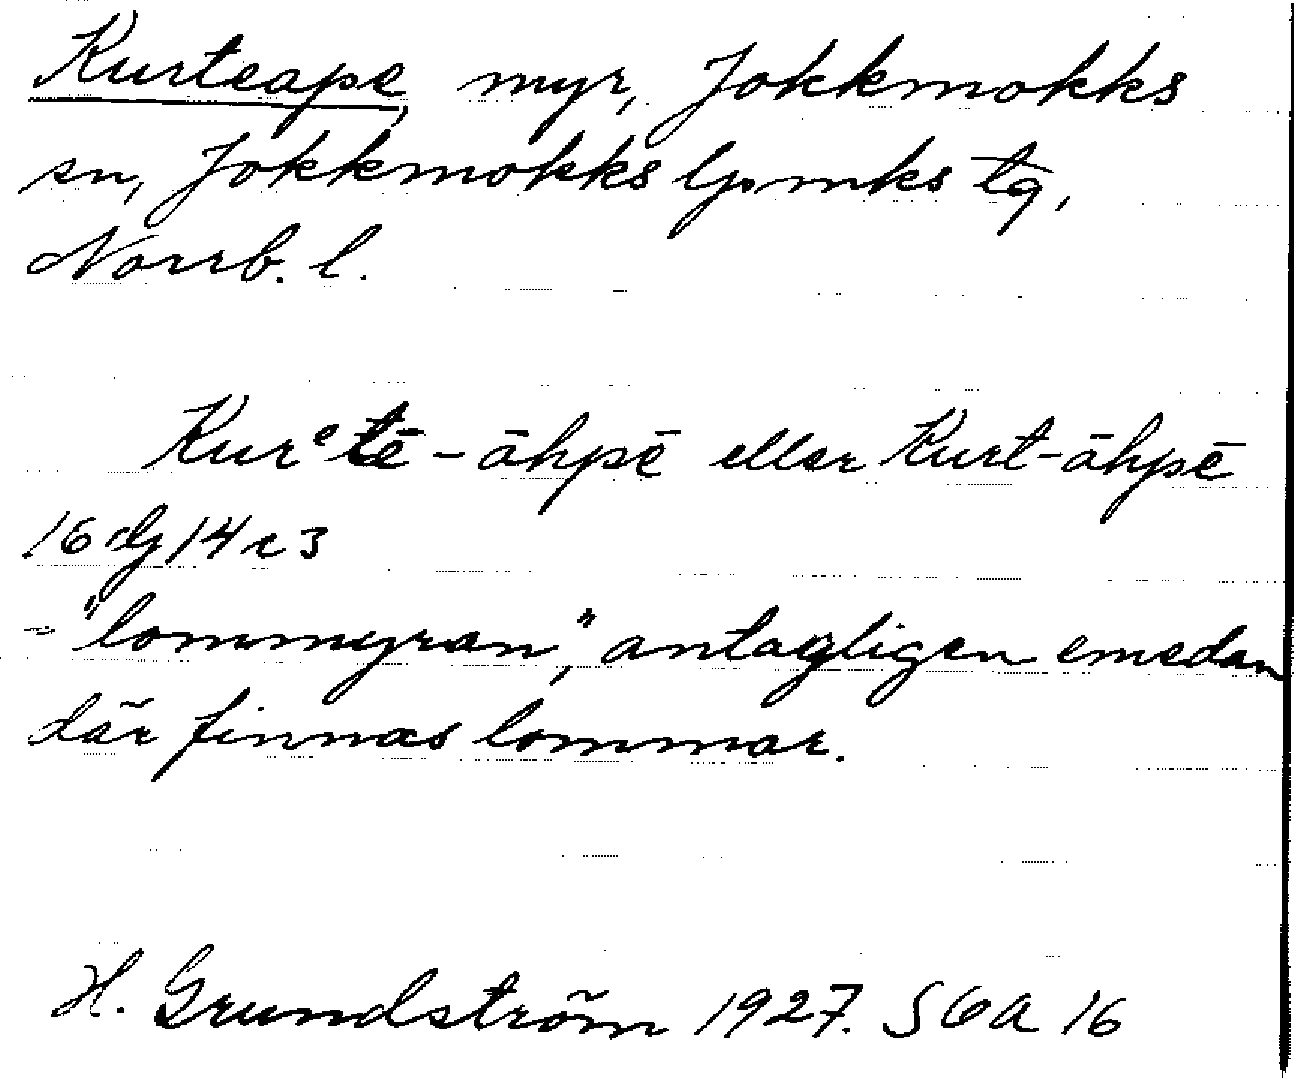 Kurteape, myr, Jokkmokks
sn, Jokkmokks lpmks tg,
Norrb. l.
Kurᵉtē-āhpē eller Kurt-āhpē
16 dg 14 c 3
- "lommyran", antagligen emedan
där finnas lommar.
H. Grundström 1927. SGA 16